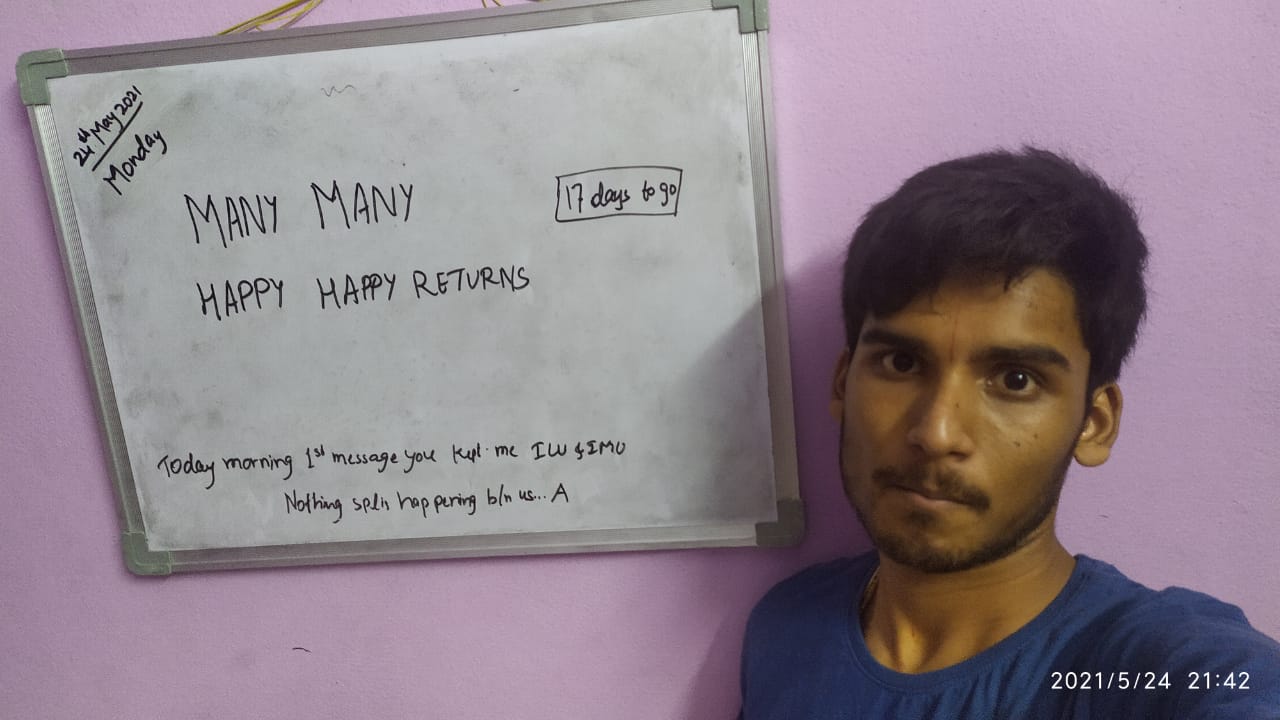 24th May 2021
Monday
MANY MANY
17 days to go
HAPPY HAPPY RETURNS
Today morning 1st message you kept me ILU & IMU
Nothing happening b/n us... A
2021/5/24 21:42